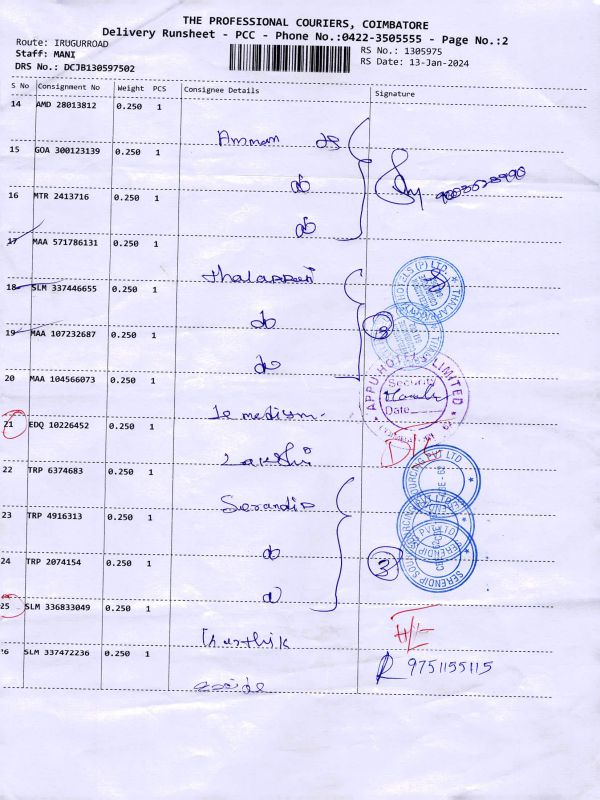 THE PROFESSIONAL COURIERS, COIMBATORE
Delivery Runsheet - PCC - Phone No.:0422-3505555 - Page No.:2
Route: IRUGURROAD
Staff: MANI
DRS No.: DCJB130597502
RS No.: 1305975
RS Date: 13-Jan-2024
S No Consignment No Weight PCS Consignee Details Signature
14 AMD 28013812 0.250 1
Amman
15 GOA 300123139 0.250 1
16 MTR 2413716 0.250 1
17 MAA 571786131 0.250 1
18 SLM 337446655 0.250 1
19 MAA 107232687 0.250 1
3
20 MAA 104566073 0.250 1
APPU HOTELS LIMITED
Security
Date
21 EDQ 10226452 0.250 1
D/L
22 TRP 6374683 0.250 1
Serandip
23 TRP 4916313 0.250 1
24 TRP 2074154 0.250 1
3
SERENDIP SOURCING PVT LTD
25 SLM 336833049 0.250 1
Karthik
H/L
26 SLM 337472236 0.250 1
9751155115